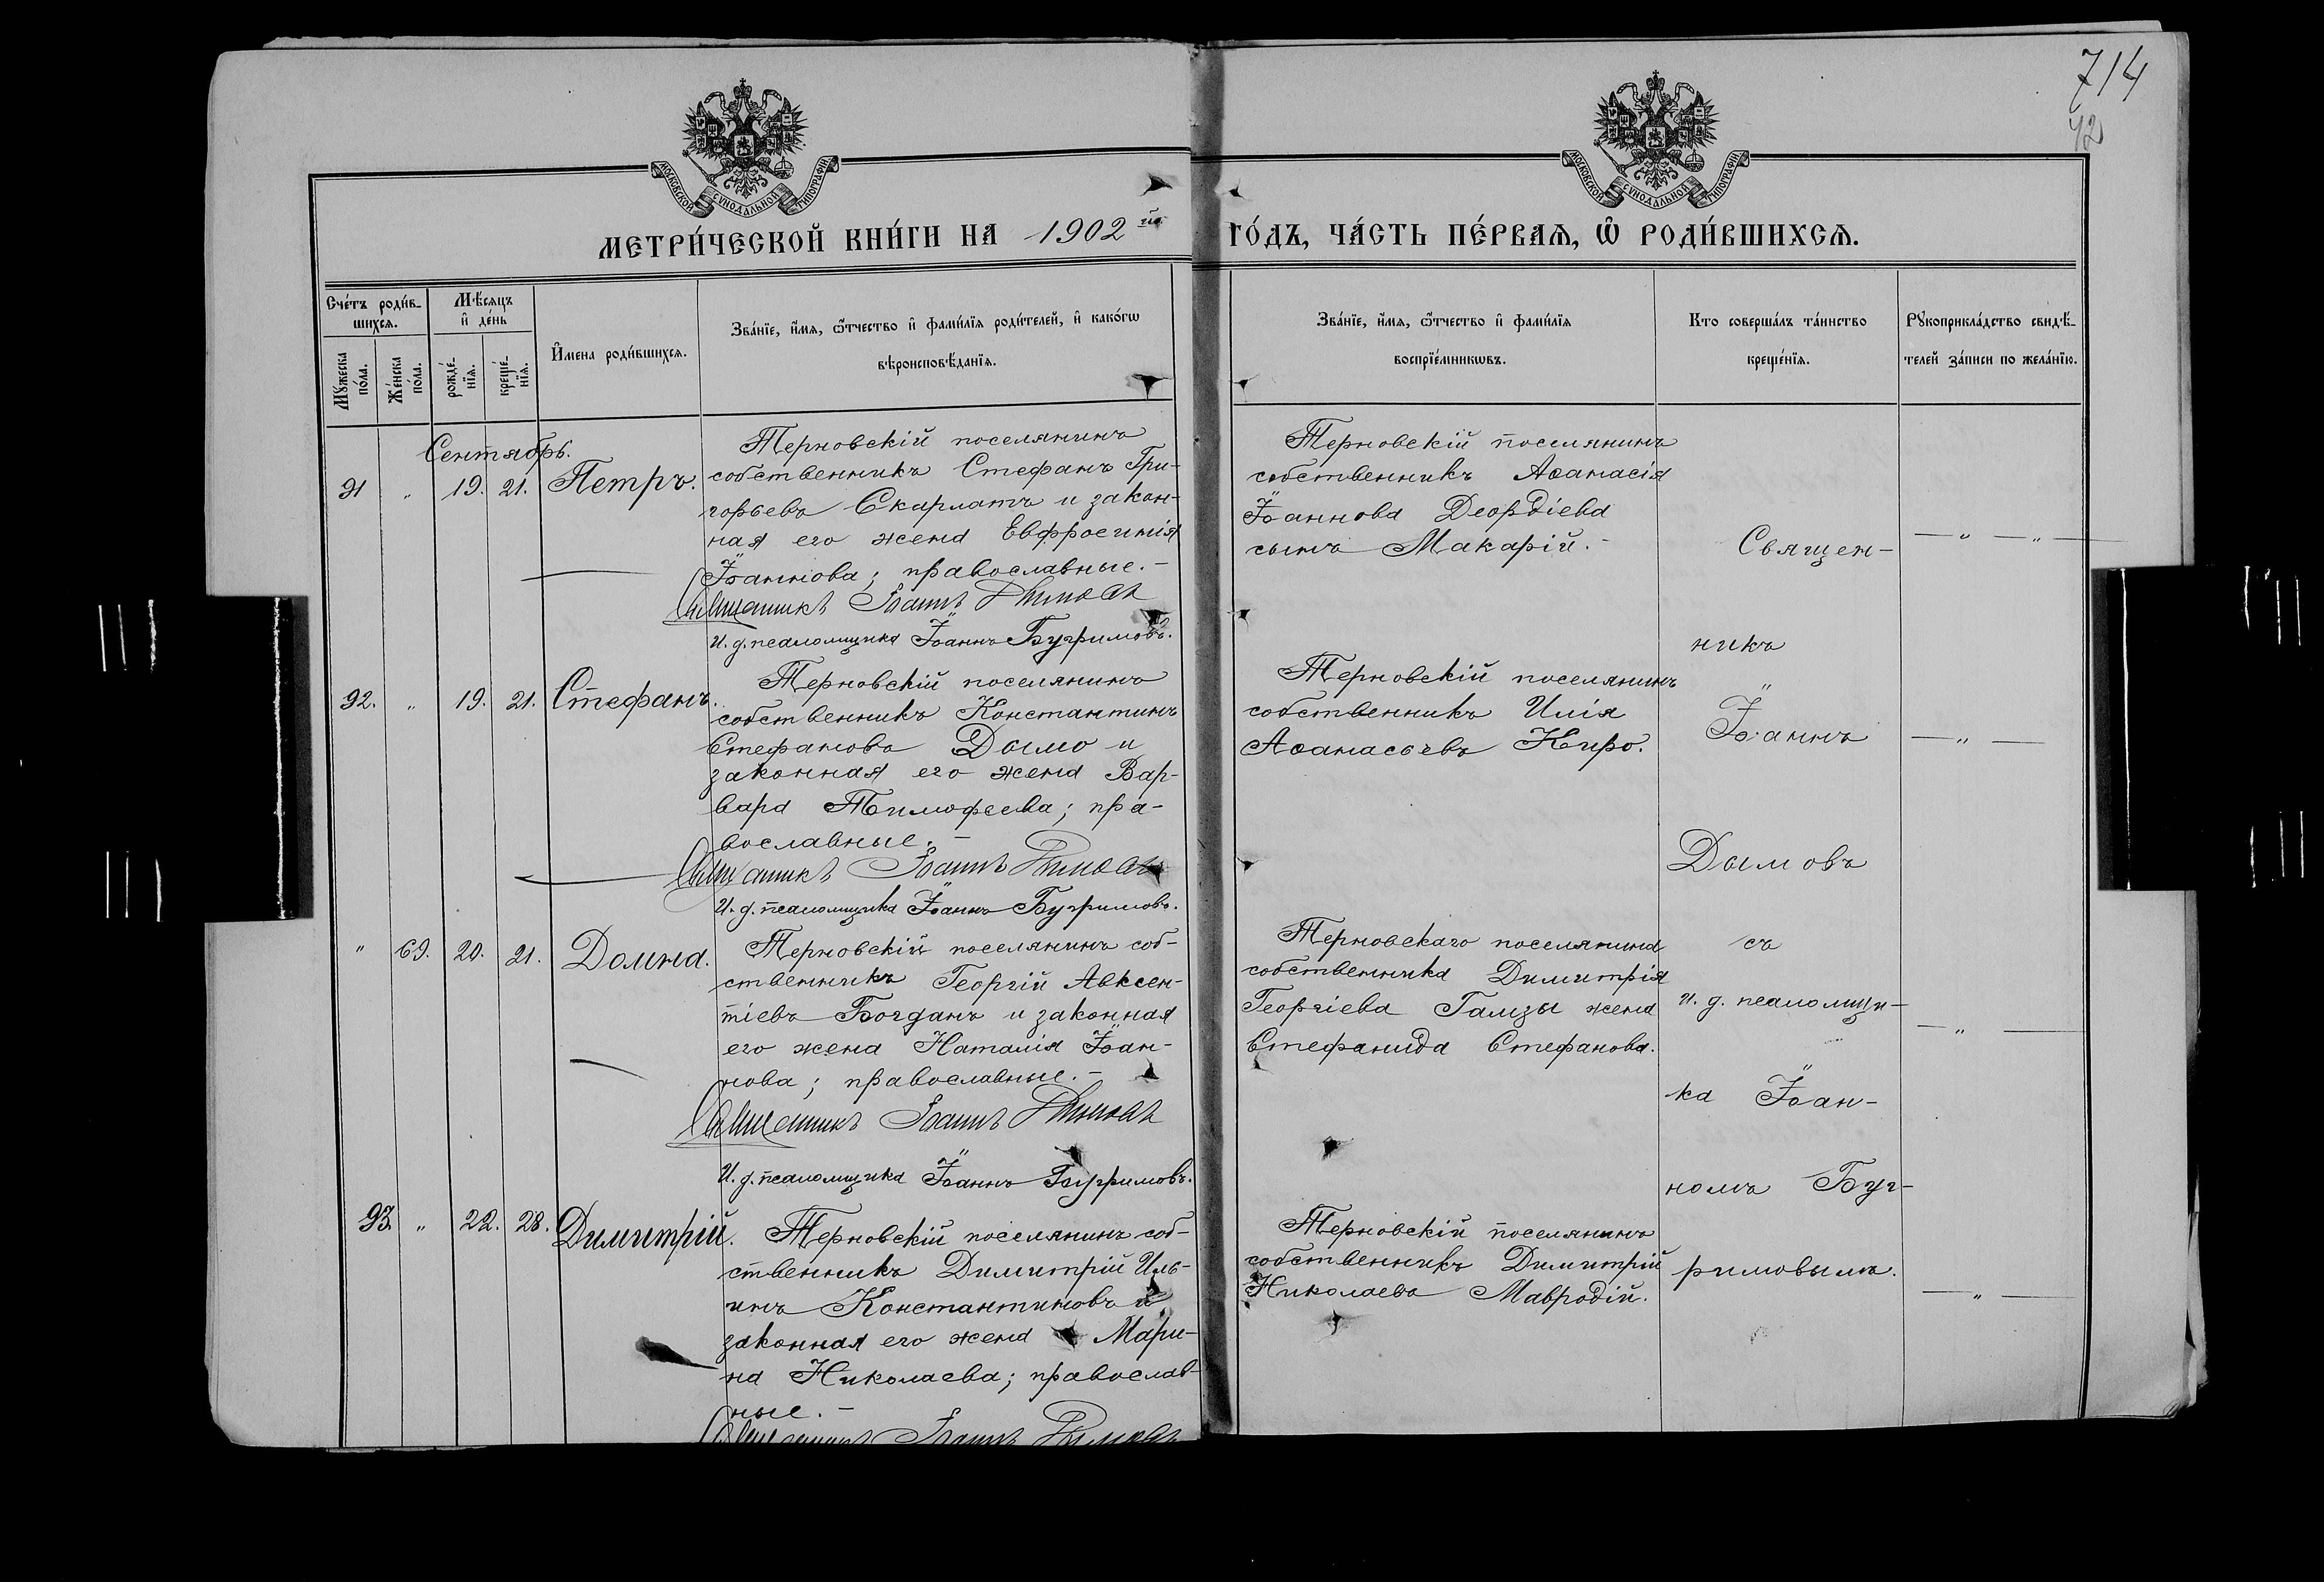 714
42
МОСКОВСКОЙ СУНОДАЛЬНОЙ ТИПОГРАФІИ
МОСКОВСКОЙ СУНОДАЛЬНОЙ ТИПОГРАФІИ
МЕТРИ́ЧЕСКОЙ КНИ́ГИ НА 1902 й
ГО́ДЪ, ЧА́СТЬ ПЕ́РВАѦ, Ѡ҆ РОДИ́ВШИХСѦ.
Сче́тъ роди́в-
шихсѧ.
Мꙋжеска по́ла.
Же́нска по́ла.
Мѣ́сяцъ
и҆ де́нь
рожде́-
нїѧ.
креще́-
нїѧ.
И҆мена роди́вшихсѧ.
Зва́нїе, и҆́мѧ, ѻ҆́тчество и҆ фами́лїѧ роди́телей, и҆ како́гѡ
вѣроисповѣ́данїѧ.
Зва́нїе, и҆́мѧ, ѻ҆́тчество и҆ фами́лїѧ
воспрїе́мникѡвъ.
Кто соверша́лъ та́инство
креще́нїѧ.
Рꙋкоприкла́дство свидѣ́-
телей за́писи по жела́нїю.
Сентябрь.
91 " 19. 21. Петръ.
Терновскій поселянинъ
собственникъ Стефанъ Гри-
горьевъ Скарлатъ и закон-
ная его жена Евфросинія
Іоаннова; православные.-
Священникъ Іоаннъ Дымовъ
И. д. псаломщика Іоаннъ Бугримовъ.
Терновскій поселянинъ
собственникъ Аѳанасія
Іоаннова Деордіева
сынъ Макарій.-
— " — " —
92. " 19. 21. Стефанъ.
Терновскій поселянинъ
собственникъ Константинъ
Стефановъ Дымо и
законная его жена Вар-
вара Тимофеева; пра-
вославные.-
Священникъ Іоаннъ Дымовъ
И. д. псаломщика Іоаннъ Бугримовъ.
Терновскій поселянинъ
собственникъ Илія
Аѳанасьевъ Киро.
— " —
" 69. 20. 21. Домна.
Терновскій поселянинъ соб-
ственникъ Георгій Авксен-
тіевъ Богданъ и законная
его жена Наталія Іоан-
нова; православные.-
Священникъ Іоаннъ Дымовъ
И. д. псаломщика Іоаннъ Бугримовъ.
Терновскаго поселянина
собственника Димитрія
Георгіева Гамзы жена
Стефанида Стефанова.
— " —
93. " 22. 28. Димитрій.
Терновскій поселянинъ соб-
ственникъ Димитрій Иль-
инъ Константиновъ и
законная его жена Мари-
на Николаева; православ-
ные.-
Священникъ Іоаннъ Дымовъ
Терновскій поселянинъ
собственникъ Димитрій
Николаевъ Мавродій.
— " —
Священ-
никъ
Іоаннъ
Дымовъ
съ
и. д. псаломщи-
ка Іоан-
номъ Буг-
римовымъ.